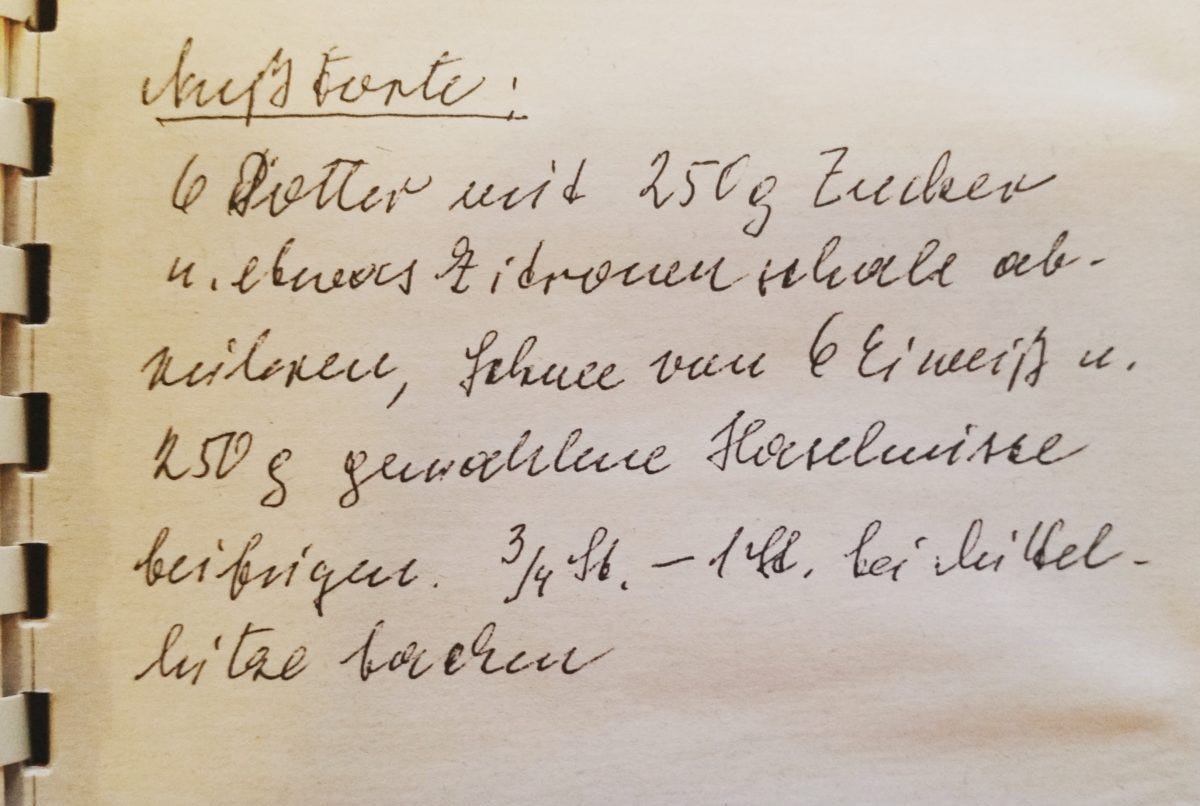 Nußtorte:
6 Dotter mit 250g Zucker
u. etwas Zitronenschale ab-
rühren, Schnee von 6 Eiweiß u.
250g gemahlene Haselnüsse
beifügen. 3/4 St. – 1 St. bei Mittel-
hitze backen